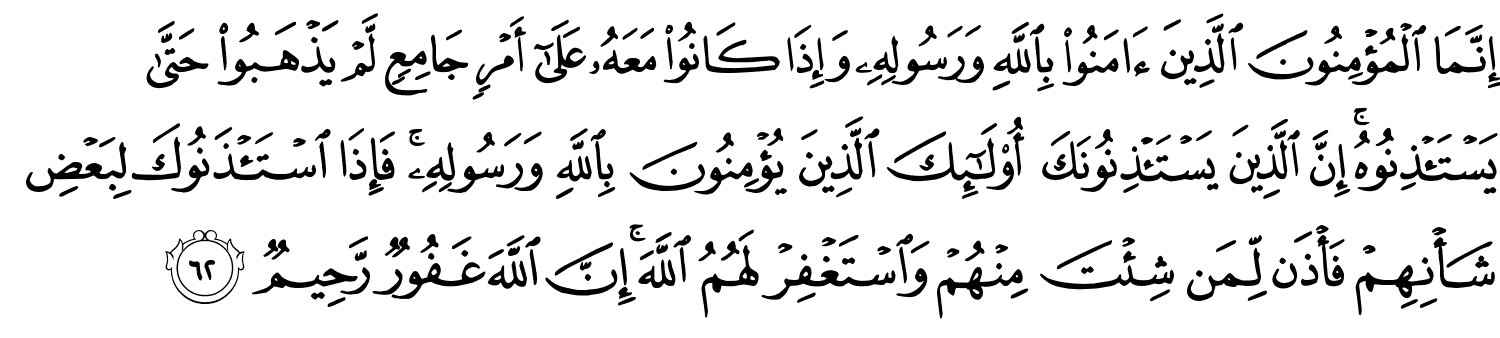 إِنَّمَا ٱلْمُؤْمِنُونَ ٱلَّذِينَ ءَامَنُوا۟ بِٱللَّهِ وَرَسُولِهِۦ وَإِذَا كَانُوا۟ مَعَهُۥ عَلَىٰٓ أَمْرٍ جَامِعٍ لَّمْ يَذْهَبُوا۟ حَتَّىٰ
يَسْتَـْٔذِنُوهُ ۚ إِنَّ ٱلَّذِينَ يَسْتَـْٔذِنُونَكَ أُو۟لَـٰٓئِكَ ٱلَّذِينَ يُؤْمِنُونَ بِٱللَّهِ وَرَسُولِهِۦ ۚ فَإِذَا ٱسْتَـْٔذَنُوكَ لِبَعْضِ
شَأْنِهِمْ فَأْذَن لِّمَن شِئْتَ مِنْهُمْ وَٱسْتَغْفِرْ لَهُمُ ٱللَّهَ ۚ إِنَّ ٱللَّهَ غَفُورٌ رَّحِيمٌ ٦٢